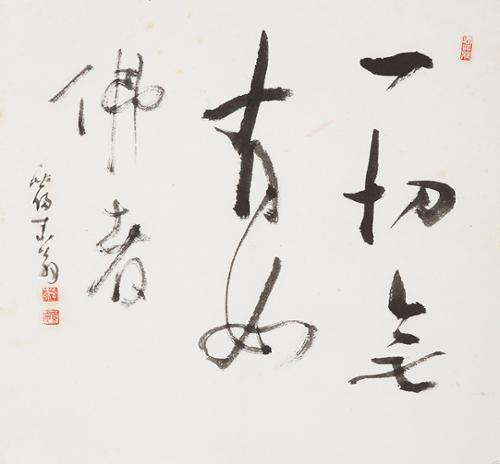 一切無
有如
佛者